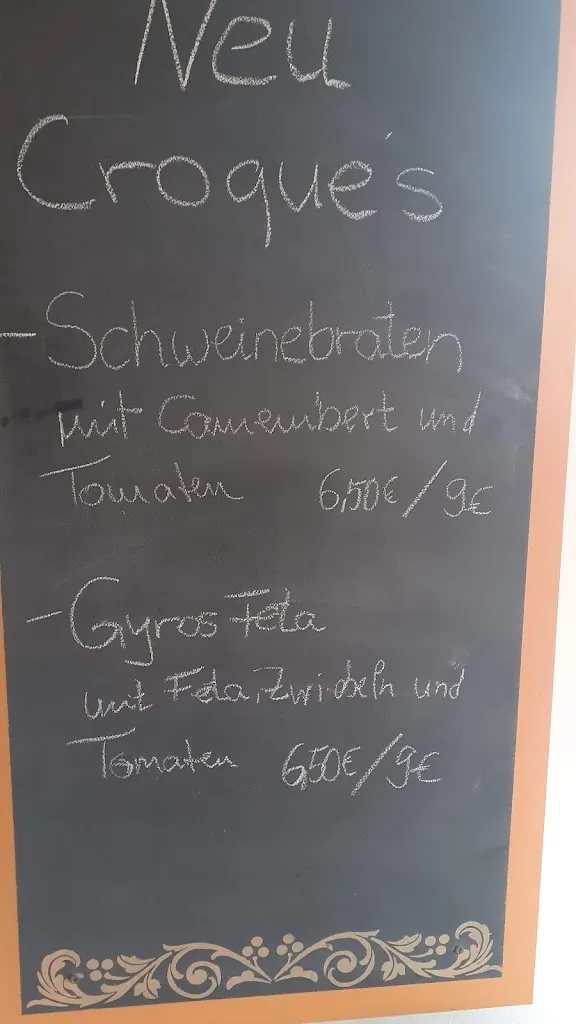 Neu
Croque's
- Schweinebraten
mit Camembert und
Tomaten 6,50€/9€
- Gyros Feta
mit Feta, Zwiebeln und
Tomaten 6,50€/9€